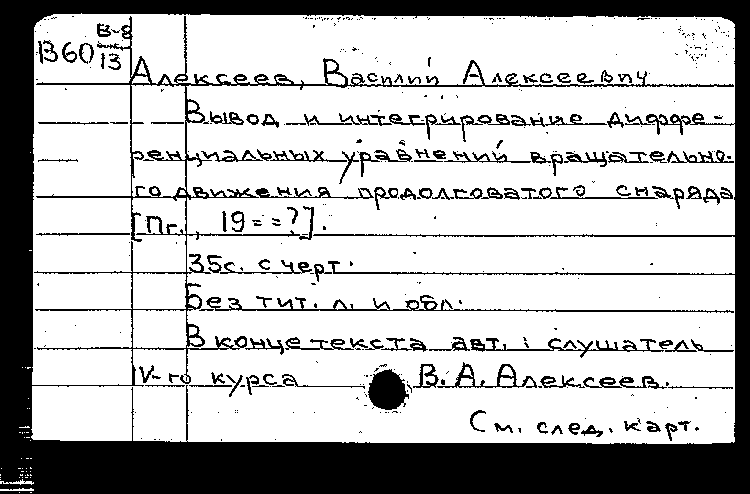 В-8
В60 13
Алексеев, Василий Алексеевич
Вывод и интегрирование диффе-
ренциальных уравнений вращательно-
го движения продолговатого снаряда
[Пг., 19==?].
35с. с черт.
Без тит. л. и обл.
В конце текста авт.: слушатель
IV-го курса В. А. Алексеев.
См. след. карт.